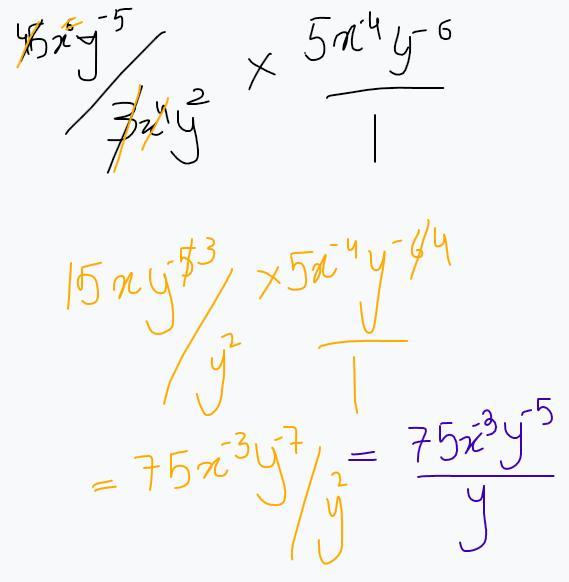 45x⁵y⁻⁵ × 5x⁻⁴y⁻⁶
/ 3x⁴y² 1
15xy⁻⁵³ × 5x⁻⁴y⁻⁶⁴
/ y² 1
= 75x⁻³y⁻⁷ / y² = 75x⁻³y⁻⁵
y